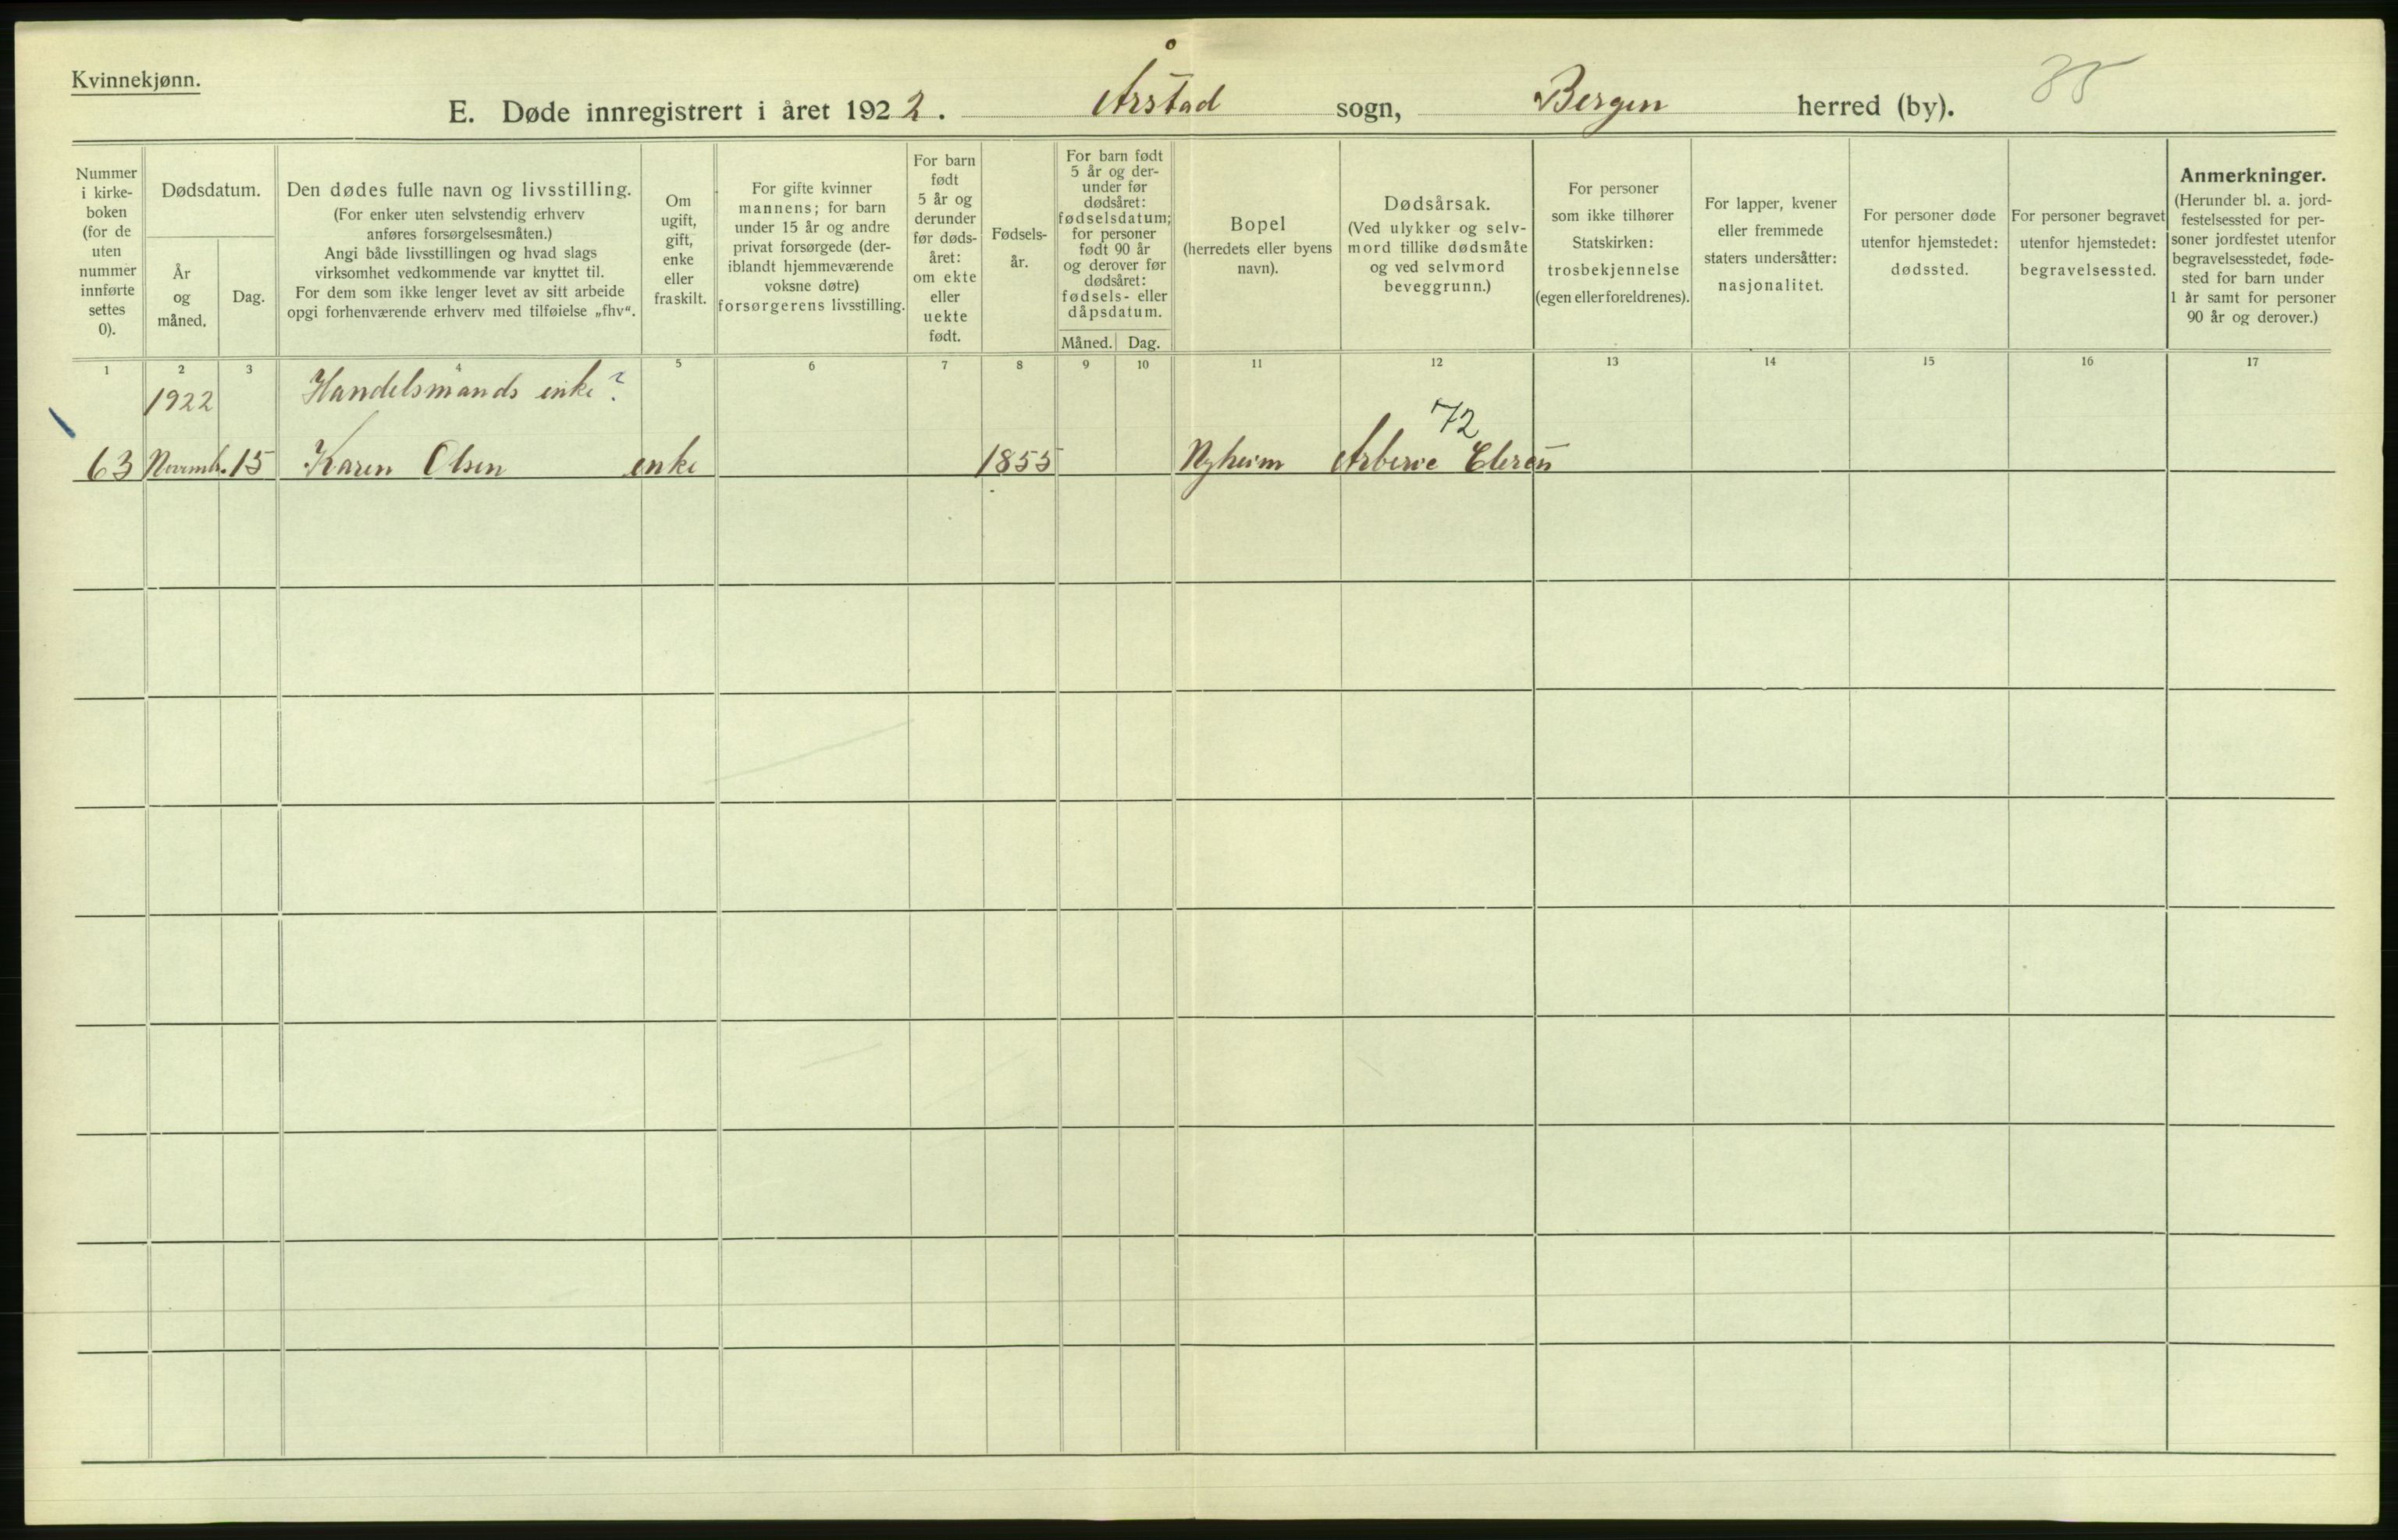 Kvinnekjønn.
E. Døde innregistrert i året 1922. Årstad sogn, Bergen herred (by). 35
Nummer i kirke-boken (for de uten nummer innførte settes 0).
Dødsdatum.
År og måned.
Dag.
Den dødes fulle navn og livsstilling.
(For enker uten selvstendig erhverv
anføres forsørgelsesmåten.)
Angi både livsstillingen og hvad slags
virksomhet vedkommende var knyttet til.
For dem som ikke lenger levet av sitt arbeide
opgi forhenværende erhverv med tilføielse „fhv“.
Om
ugift,
gift,
enke
eller
fraskilt.
For gifte kvinner
mannens; for barn
under 15 år og andre
privat forsørgede (der-
iblandt hjemmeværende
voksne døtre)
forsørgerens livsstilling.
For barn
født
5 år og
derunder
før døds-
året:
om ekte
eller
uekte
født.
Fødsels-
år.
For barn født
5 år og der-
under før
dødsåret:
fødselsdatum;
for personer
født 90 år
og derover før
dødsåret:
fødsels- eller
dåpsdatum.
Måned. Dag.
Bopel
(herredets eller byens
navn).
Dødsårsak.
(Ved ulykker og selv-
mord tillike dødsmåte
og ved selvmord
beveggrunn.)
For personer
som ikke tilhører
Statskirken:
trosbekjennelse
(egen eller foreldrenes).
For lapper, kvener
eller fremmede
staters undersåtter:
nasjonalitet.
For personer døde
utenfor hjemstedet:
dødssted.
For personer begravet
utenfor hjemstedet:
begravelsessted.
Anmerkninger.
(Herunder bl. a. jord-
festelsessted for per-
soner jordfestet utenfor
begravelsesstedet, føde-
sted for barn under
1 år samt for personer
90 år og derover.)
1 2 3 4 5 6 7 8 9 10 11 12 13 14 15 16 17
1922 Handelsmands enke ?
72
63 Novemb. 15 Karen Olsen enke 1855 Nyheim